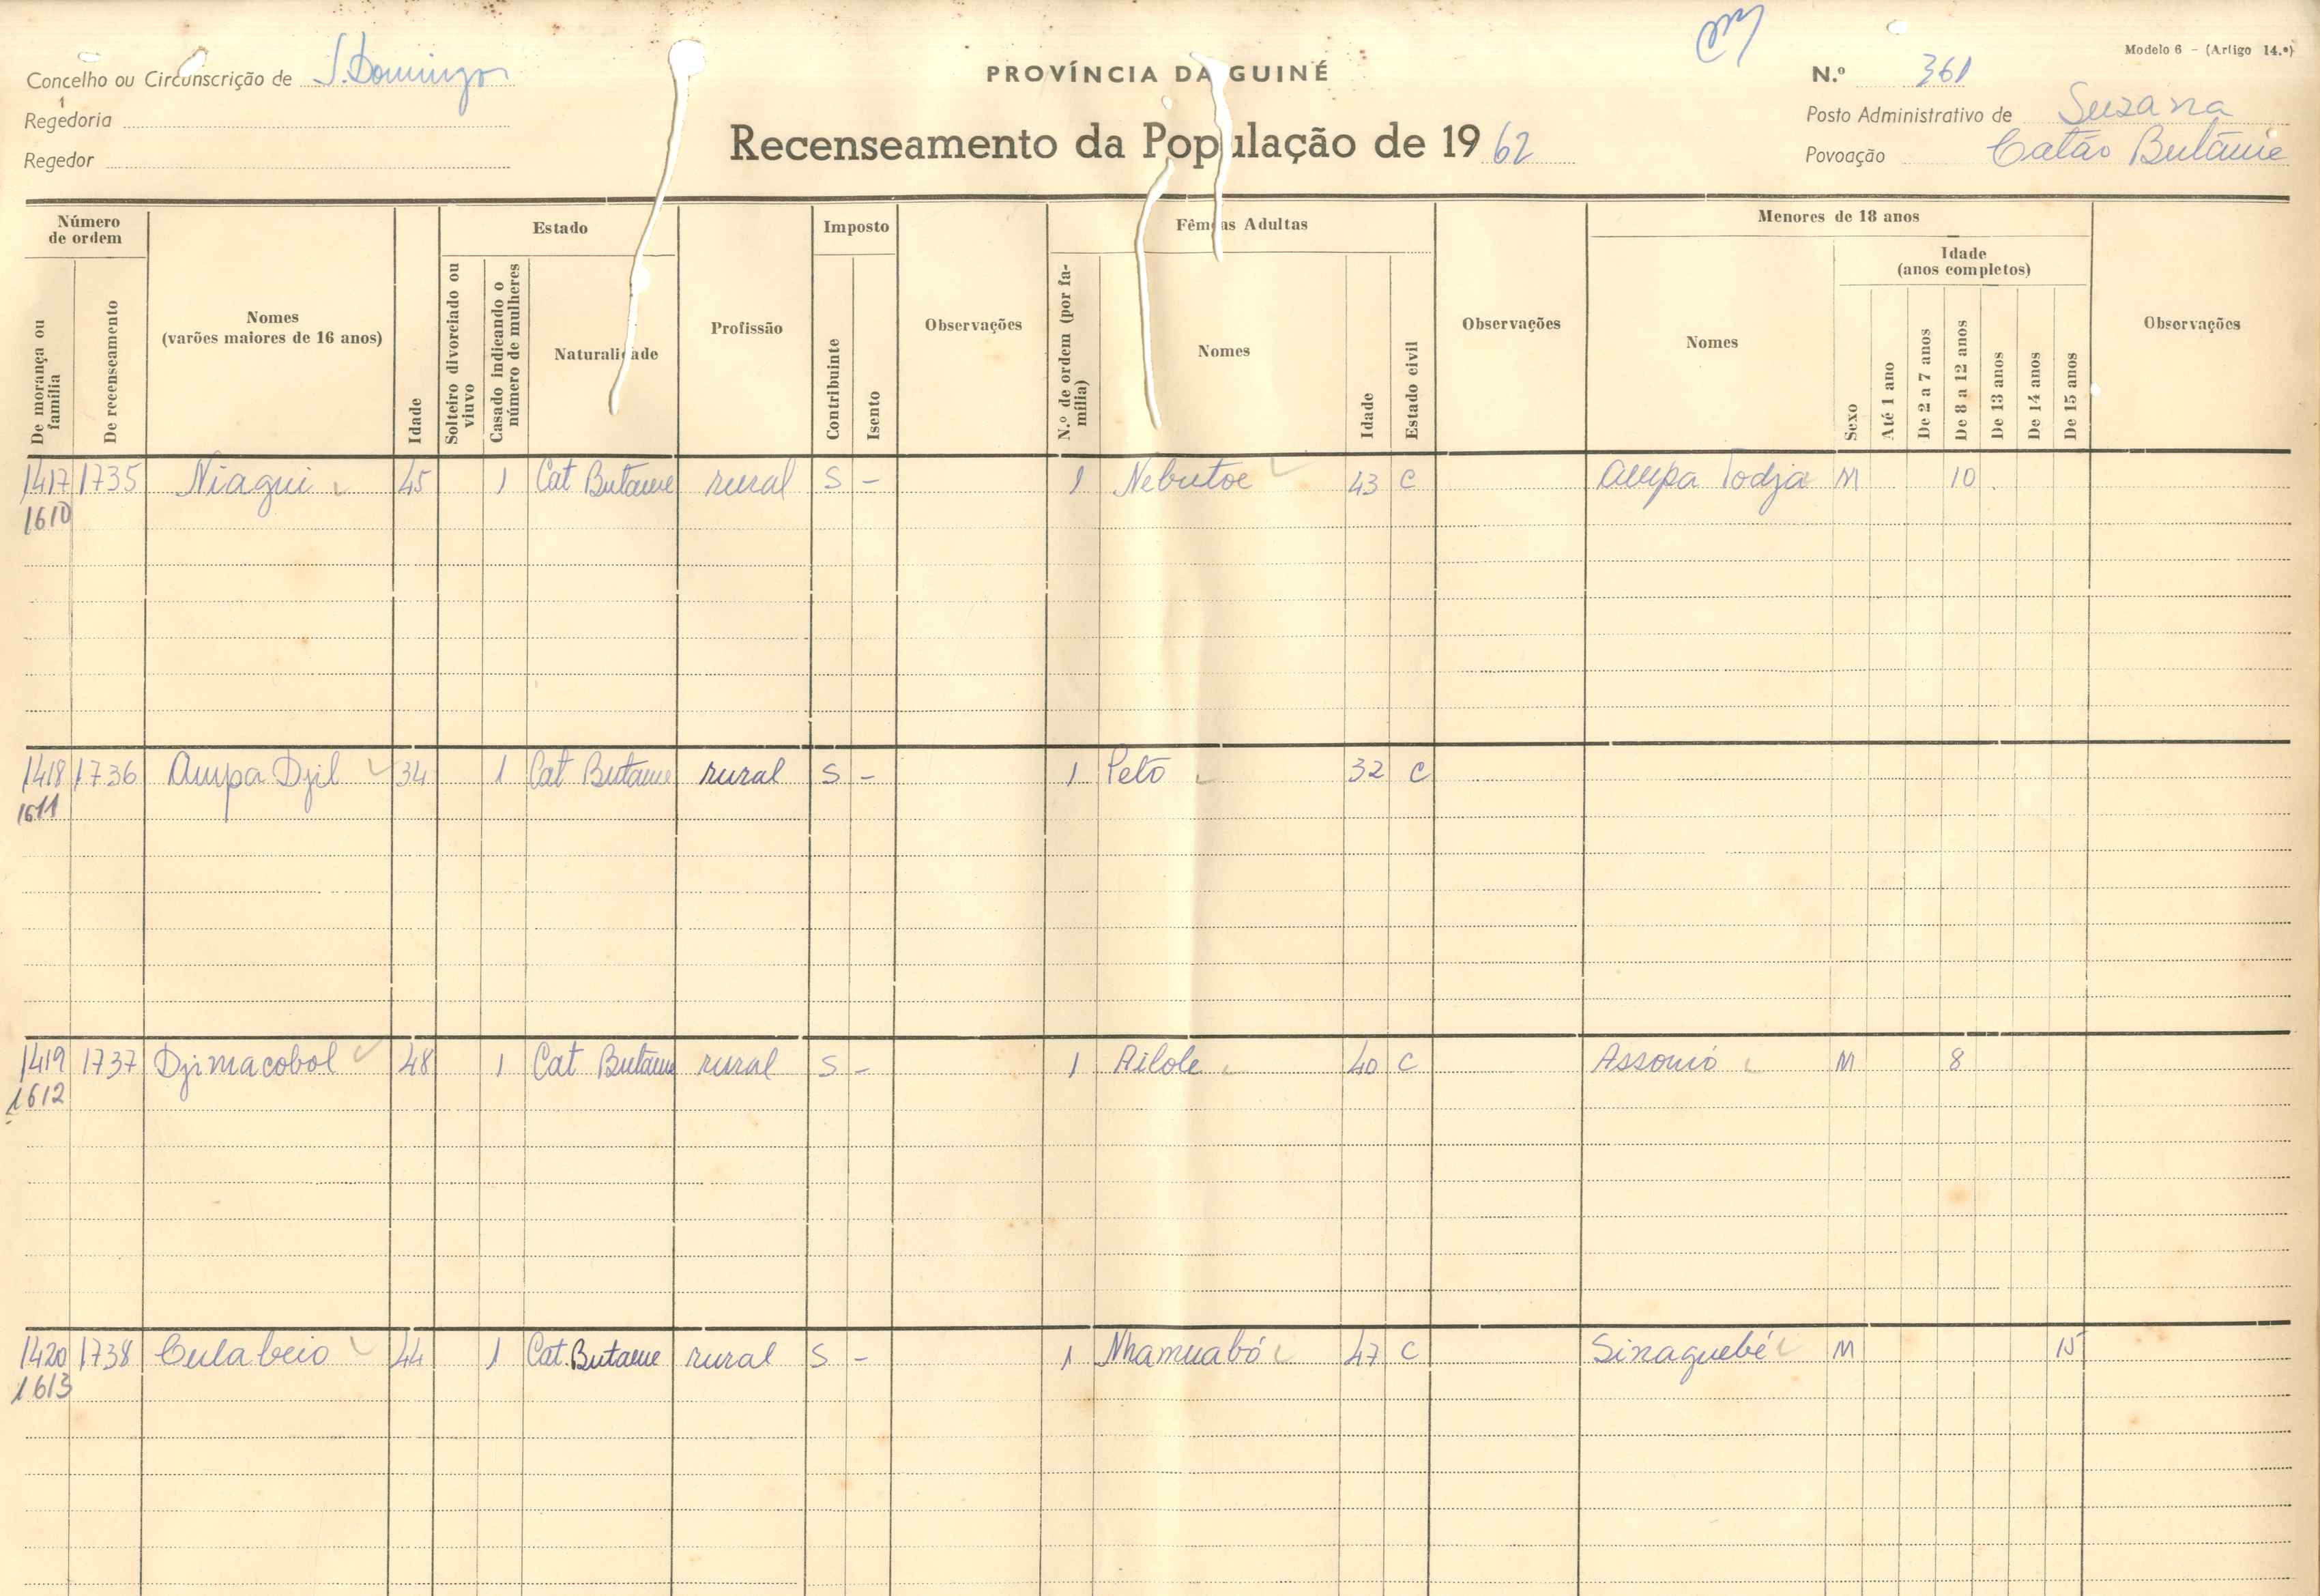 Modelo 6 - (Artigo 14.º)
Concelho ou Circunscrição de S. Domingos
PROVÍNCIA DA GUINÉ
N.º 361
Regedoria
Posto Administrativo de Suzana
Regedor
Recenseamento da População de 1962
Povoação Catão Butame
Número de ordem
De morança ou família
De recenseamento
Nomes (varões maiores de 16 anos)
Idade
Estado
Solteiro divorciado ou viuvo
Casado indicando o número de mulheres
Naturalidade
Profissão
Imposto
Contribuinte
Isento
Observações
Fêmeas Adultas
N.º de ordem (por família)
Nomes
Idade
Estado civil
Observações
Menores de 18 anos
Nomes
Sexo
Idade (anos completos)
Até 1 ano
De 2 a 7 anos
De 8 a 12 anos
De 13 anos
De 14 anos
De 15 anos
Observações
1417 1735 Niagui 45 1 Cat Butame rural S - 1 Nebutoe 43 C Ampa Todja M 10
1610
1418 1736 Ampa Djil 34 1 Cat Butame rural S - 1 Peto 32 C
1611
1419 1737 Djimacobol 48 1 Cat Butame rural S - 1 Ailole 40 C Assomó M 8
1612
1420 1738 Culabeio 44 1 Cat. Butame rural S - 1 Nhamuabó 47 C Sinaguebé M 15
1613